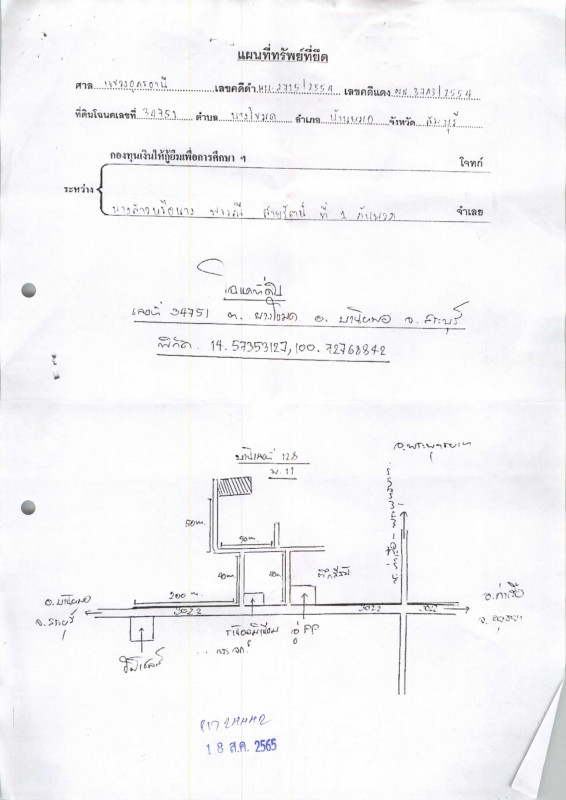 แผนที่ทรัพย์ที่ยึด
ศาล แขวงอุดรธานี เลขคดีดำ ผบ.2715/2554 เลขคดีแดง ผบ.3703/2554
ที่ดินโฉนดเลขที่ 34751 ตำบล บางโขมด อำเภอ บ้านหมอ จังหวัด สระบุรี
กองทุนเงินให้กู้ยืมเพื่อการศึกษา ฯ โจทก์
ระหว่าง
นางสาวหรือนาง พรรณี สายรัตน์ ที่ 1 กับพวก จำเลย
โฉนดที่ดิน
เลขที่ 34751 ต. บางโขมด อ. บ้านหมอ จ. สระบุรี
พิกัด. 14.57353127, 100.72768842
อ.พระพุทธบาท
บ้านเลขที่ 128
ม.11
50 m.
50 m.
40 m.
40 m.
200 m.
อ.บ้านหมอ
จ.สระบุรี
3022
3022
3022
อ.ท่าเรือ
จ.อยุธยา
ร้านอลูมิเนียม
กระจก
อู่ PP
18 ส.ค. 2565